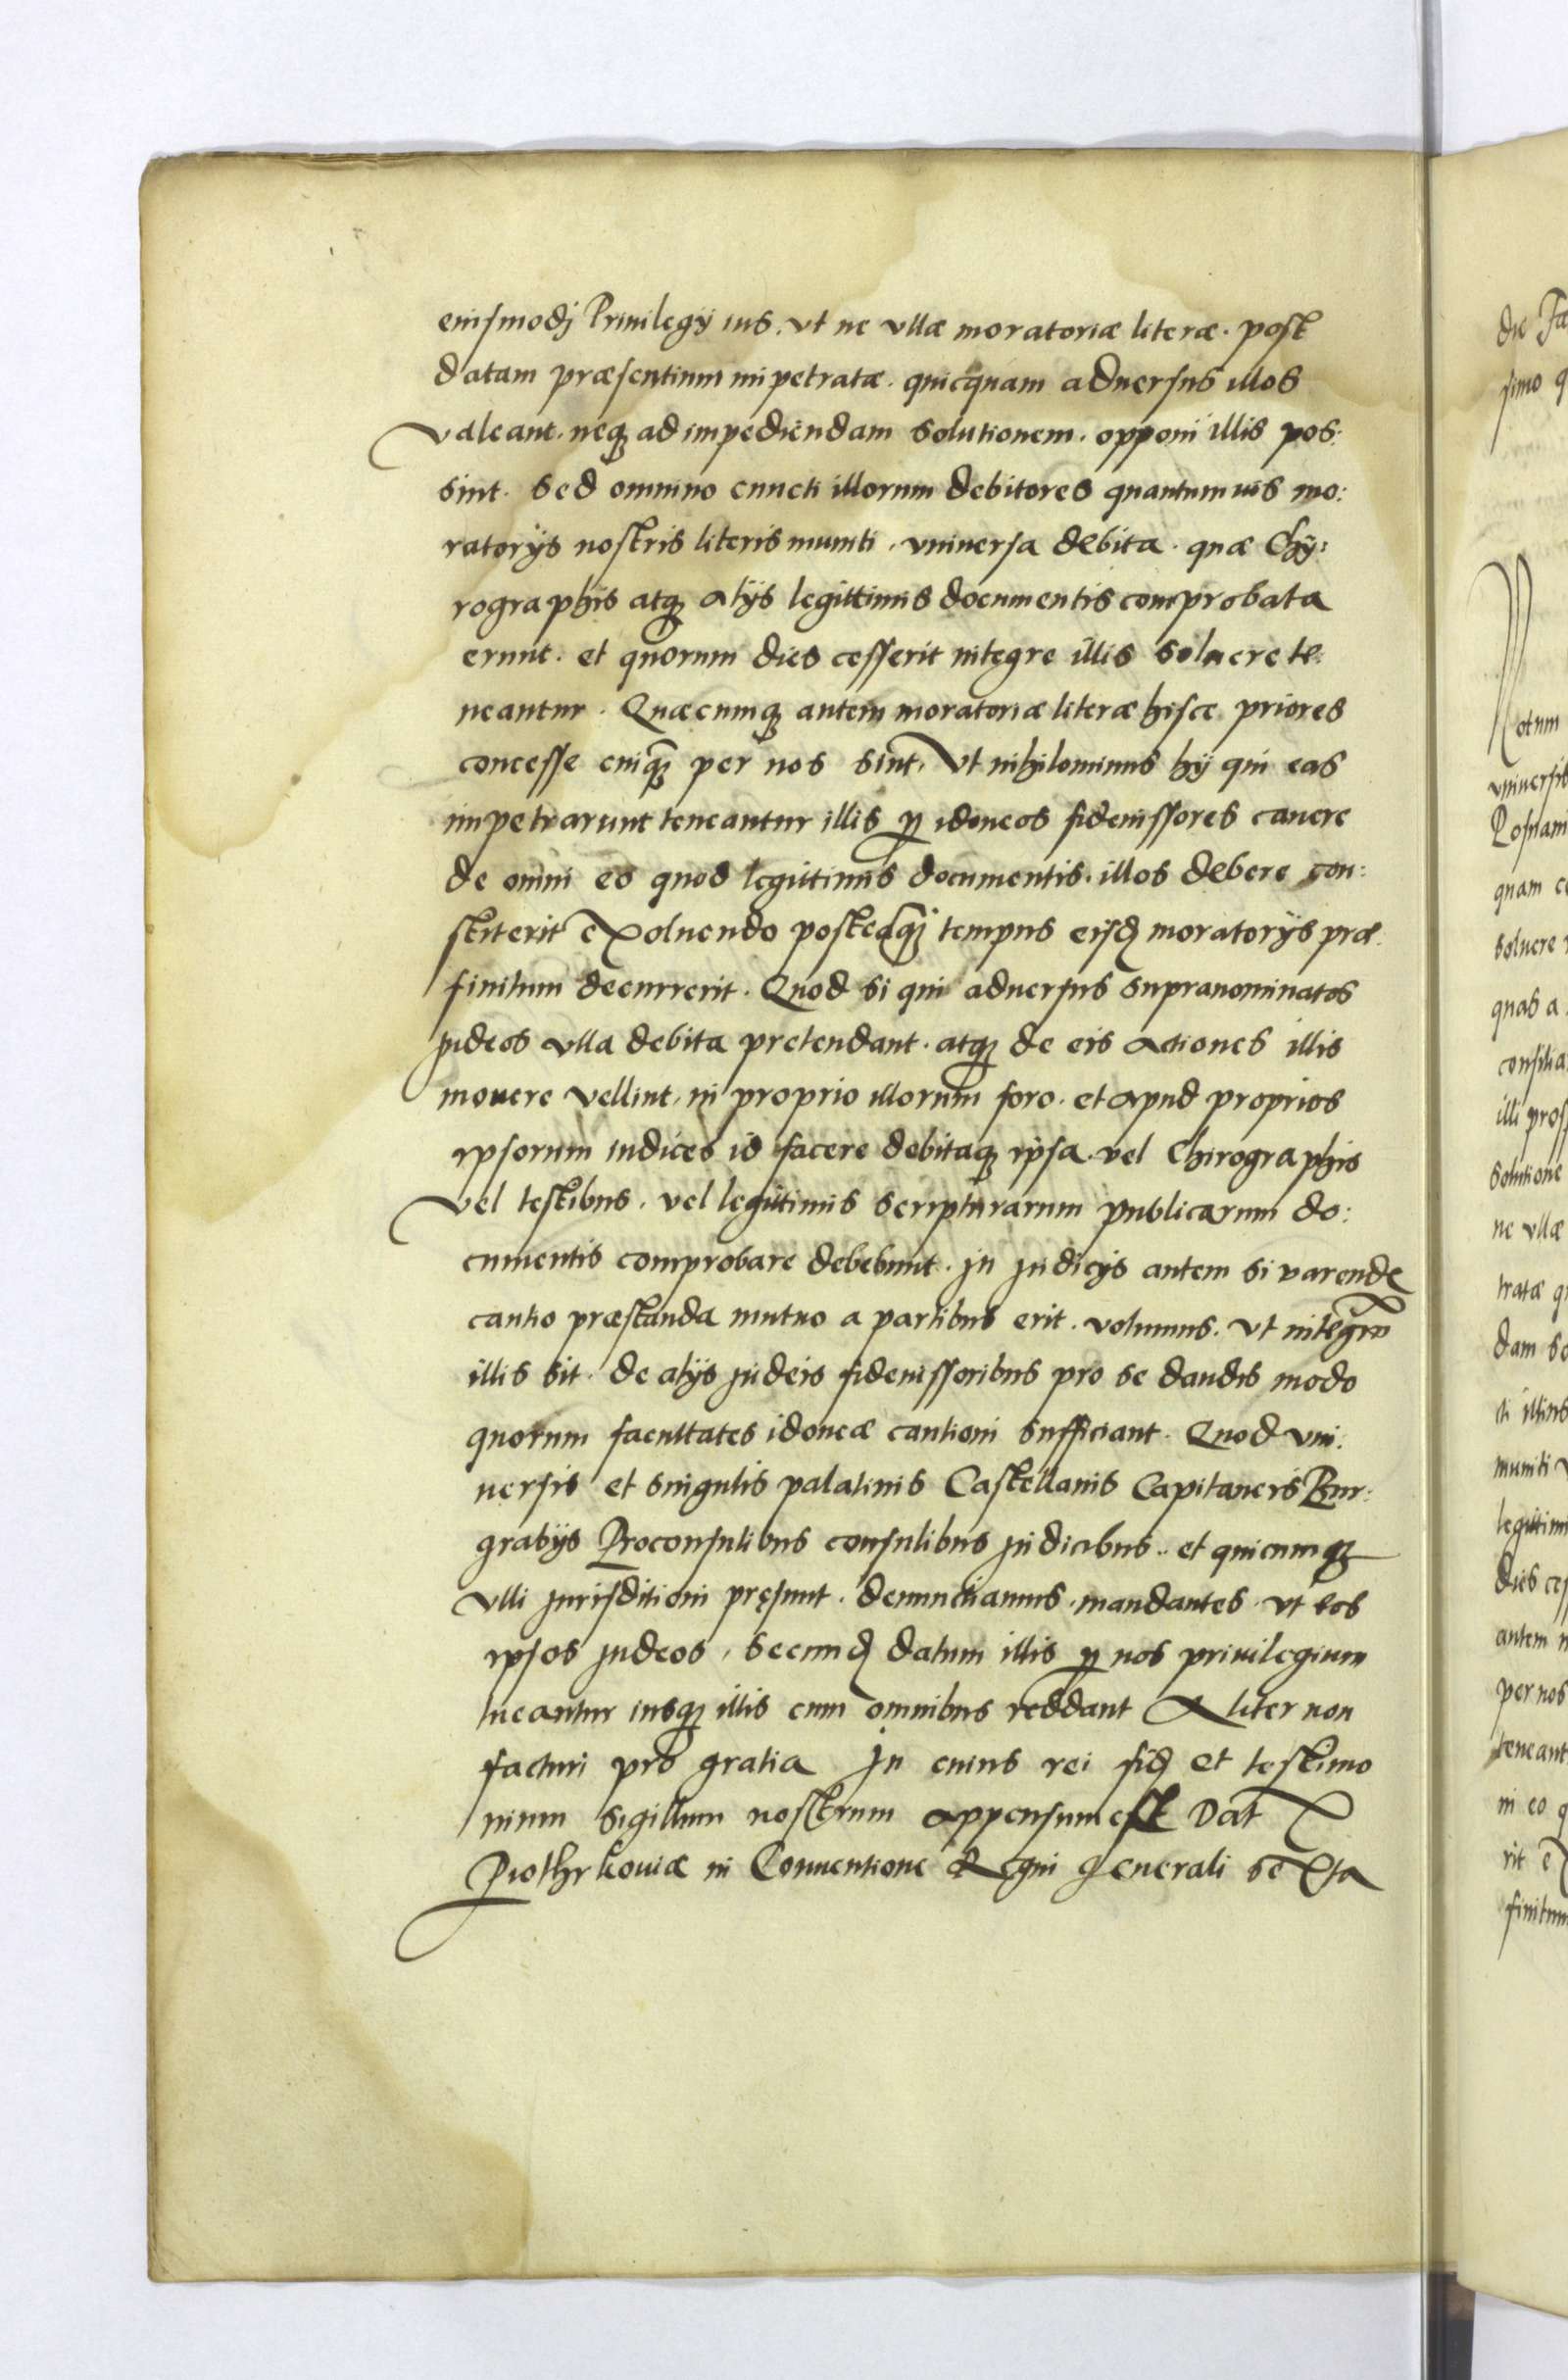 eiusmodj Priuilegij ius. vt ne vllæ moratoriæ literæ. post
datam præsentium impetratæ. quicquam aduersus illos
valeant. neqꝫ ad impediendam solutionem. opponi illis pos:
sint. Sed omnino cuncti illorum debitores quantumuis mo:
ratorijs nostris literis muniti. vniuersa debita. quæ Chy:
rographis atqꝫ alijs legittimis documentis comprobata
erunt. et quorum dies cesserit integre illis soluere te:
neantur. Quæcumqꝫ autem moratoriæ literæ hisce priores
concesse cuiqꝫ per nos sint. Vt nihilominus hij qui eas
impetrarunt teneantur illis ꝑ idoneos fideiussores cauere
de omni eo quod legittimis documentis. illos debere con:
stiterit exoluendo posteaqꝫ tempus eisd moratorijs præ:
finitum decurrerit. Quod si qui aduersus supranominatos
Judeos vlla debita pretendant. atqꝫ de eis actiones illis
mouere vellint. in proprio illorum foro. et apud proprios
ipsorum iudices id facere debitaqꝫ ipsa. vel Chirographis
vel testibus. vel legittimis scripturarum publicarum do:
cumentis comprobare debebunt. Jn Judicijs autem si varende
cautio præstanda mutuo a partibus erit. volumus. vt integrū
illis sit. de alijs Judeis fideiussoribus pro se dandis modo
quorum facultates idoneæ cautioni sufficiant. Quod vni:
uersis et singulis palatinis Castellanis Capitaneis Bur:
grabijs Proconsulibus consulibus Judicibus. et quicumqꝫ
vlli Jurisditioni pręsunt. denunctiamus. mandantes. vt eos
ipsos Judeos, secund datum illis ꝑ nos priuilegium
tueantur iusqꝫ illis cum omnibus reddant Aliter non
facturi pro gratia Jn cuius rei fid et testimo
nium sigillum nostrum appensum est Dat
Piothrkouiæ in Conuentione Regni generali sexta
die
simo
Notum
vniuersis
quam
soluere
quas a
illi
solutione
ne vllæ
tratæ
dam
muniti
legittimi
dies
antem
per nos
teneant
in eo
rit
finitum